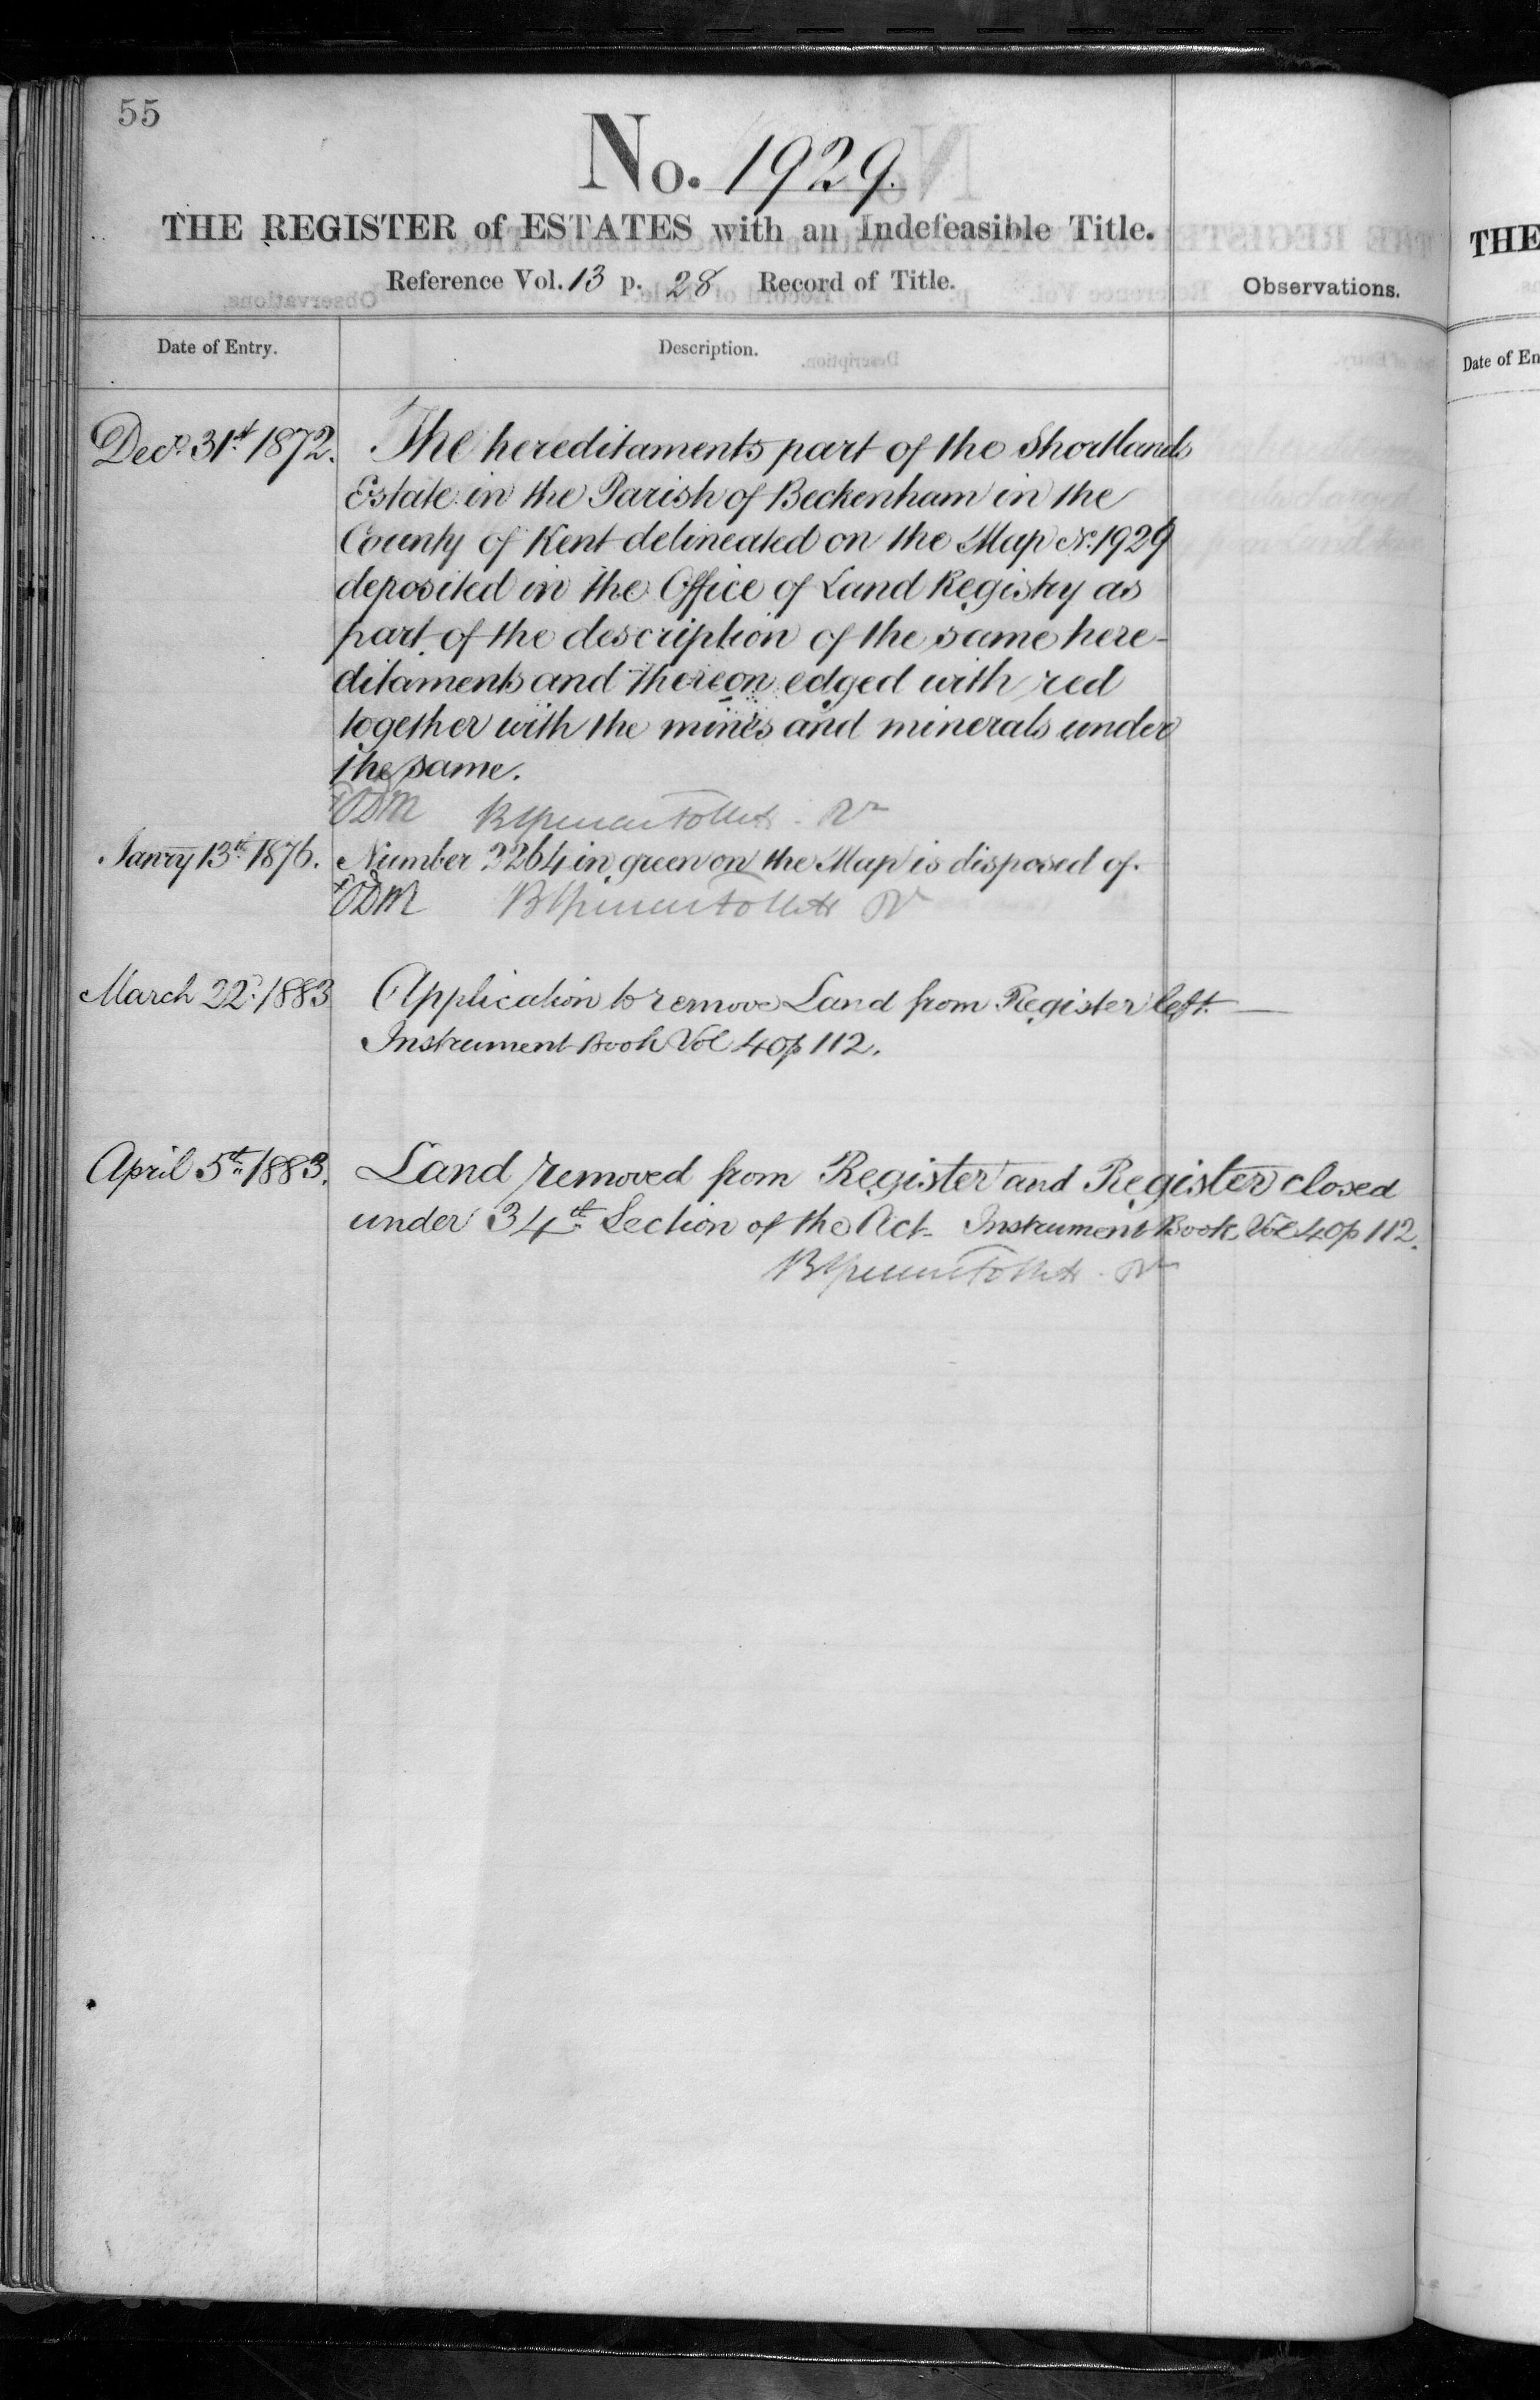 55
No. 1929.
THE REGISTER of ESTATES with an Indefeasible Title.
Reference Vol. 13 p. 28 Record of Title.
Observations.
Date of Entry.
Description.
Decr. 31st. 1872.
The hereditaments part of the Shortlands
Estate in the Parish of Beckenham in the
County of Kent delineated on the Map No. 1929
deposited in the Office of Land Registry as
part of the description of the same here-
ditaments and thereon edged with red
together with the mines and minerals under
the same.
Janry 13th. 1876.
Number 2264 in green on the Map is disposed of.
March 22d. 1883
Application to remove Land from Register left.
Instrument Book Vol 40 p 112.
April 5th. 1883.
Land removed from Register and Register closed
under 34th. Section of the Act. Instrument Book Vol 40 p 112.
THE
Date of En